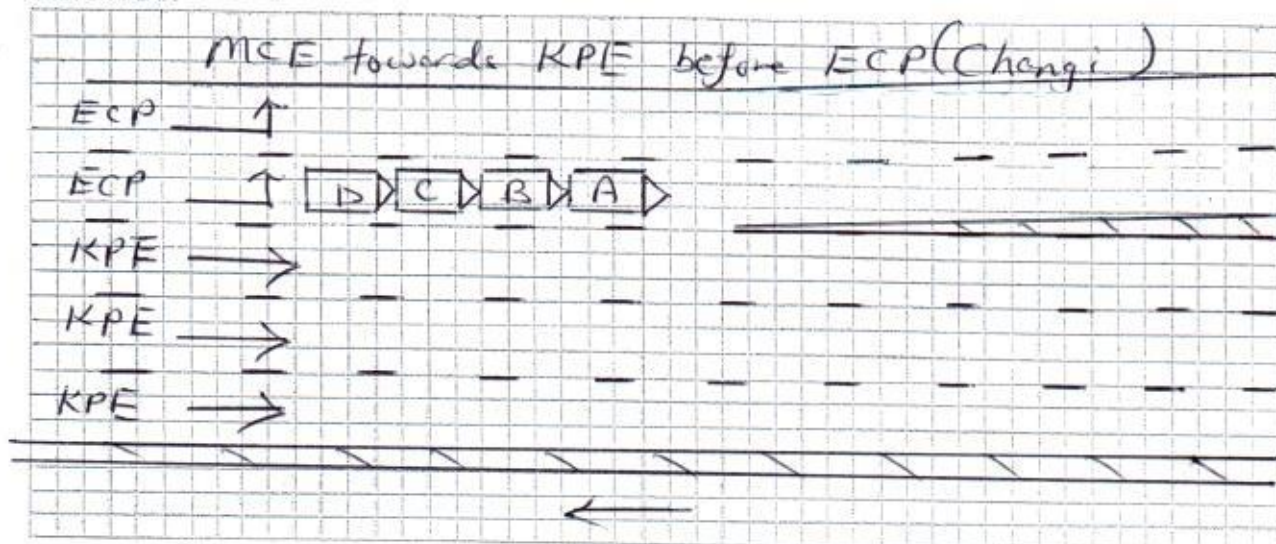 MCE towards KPE before ECP (Changi)
ECP
ECP D C B A
KPE
KPE
KPE